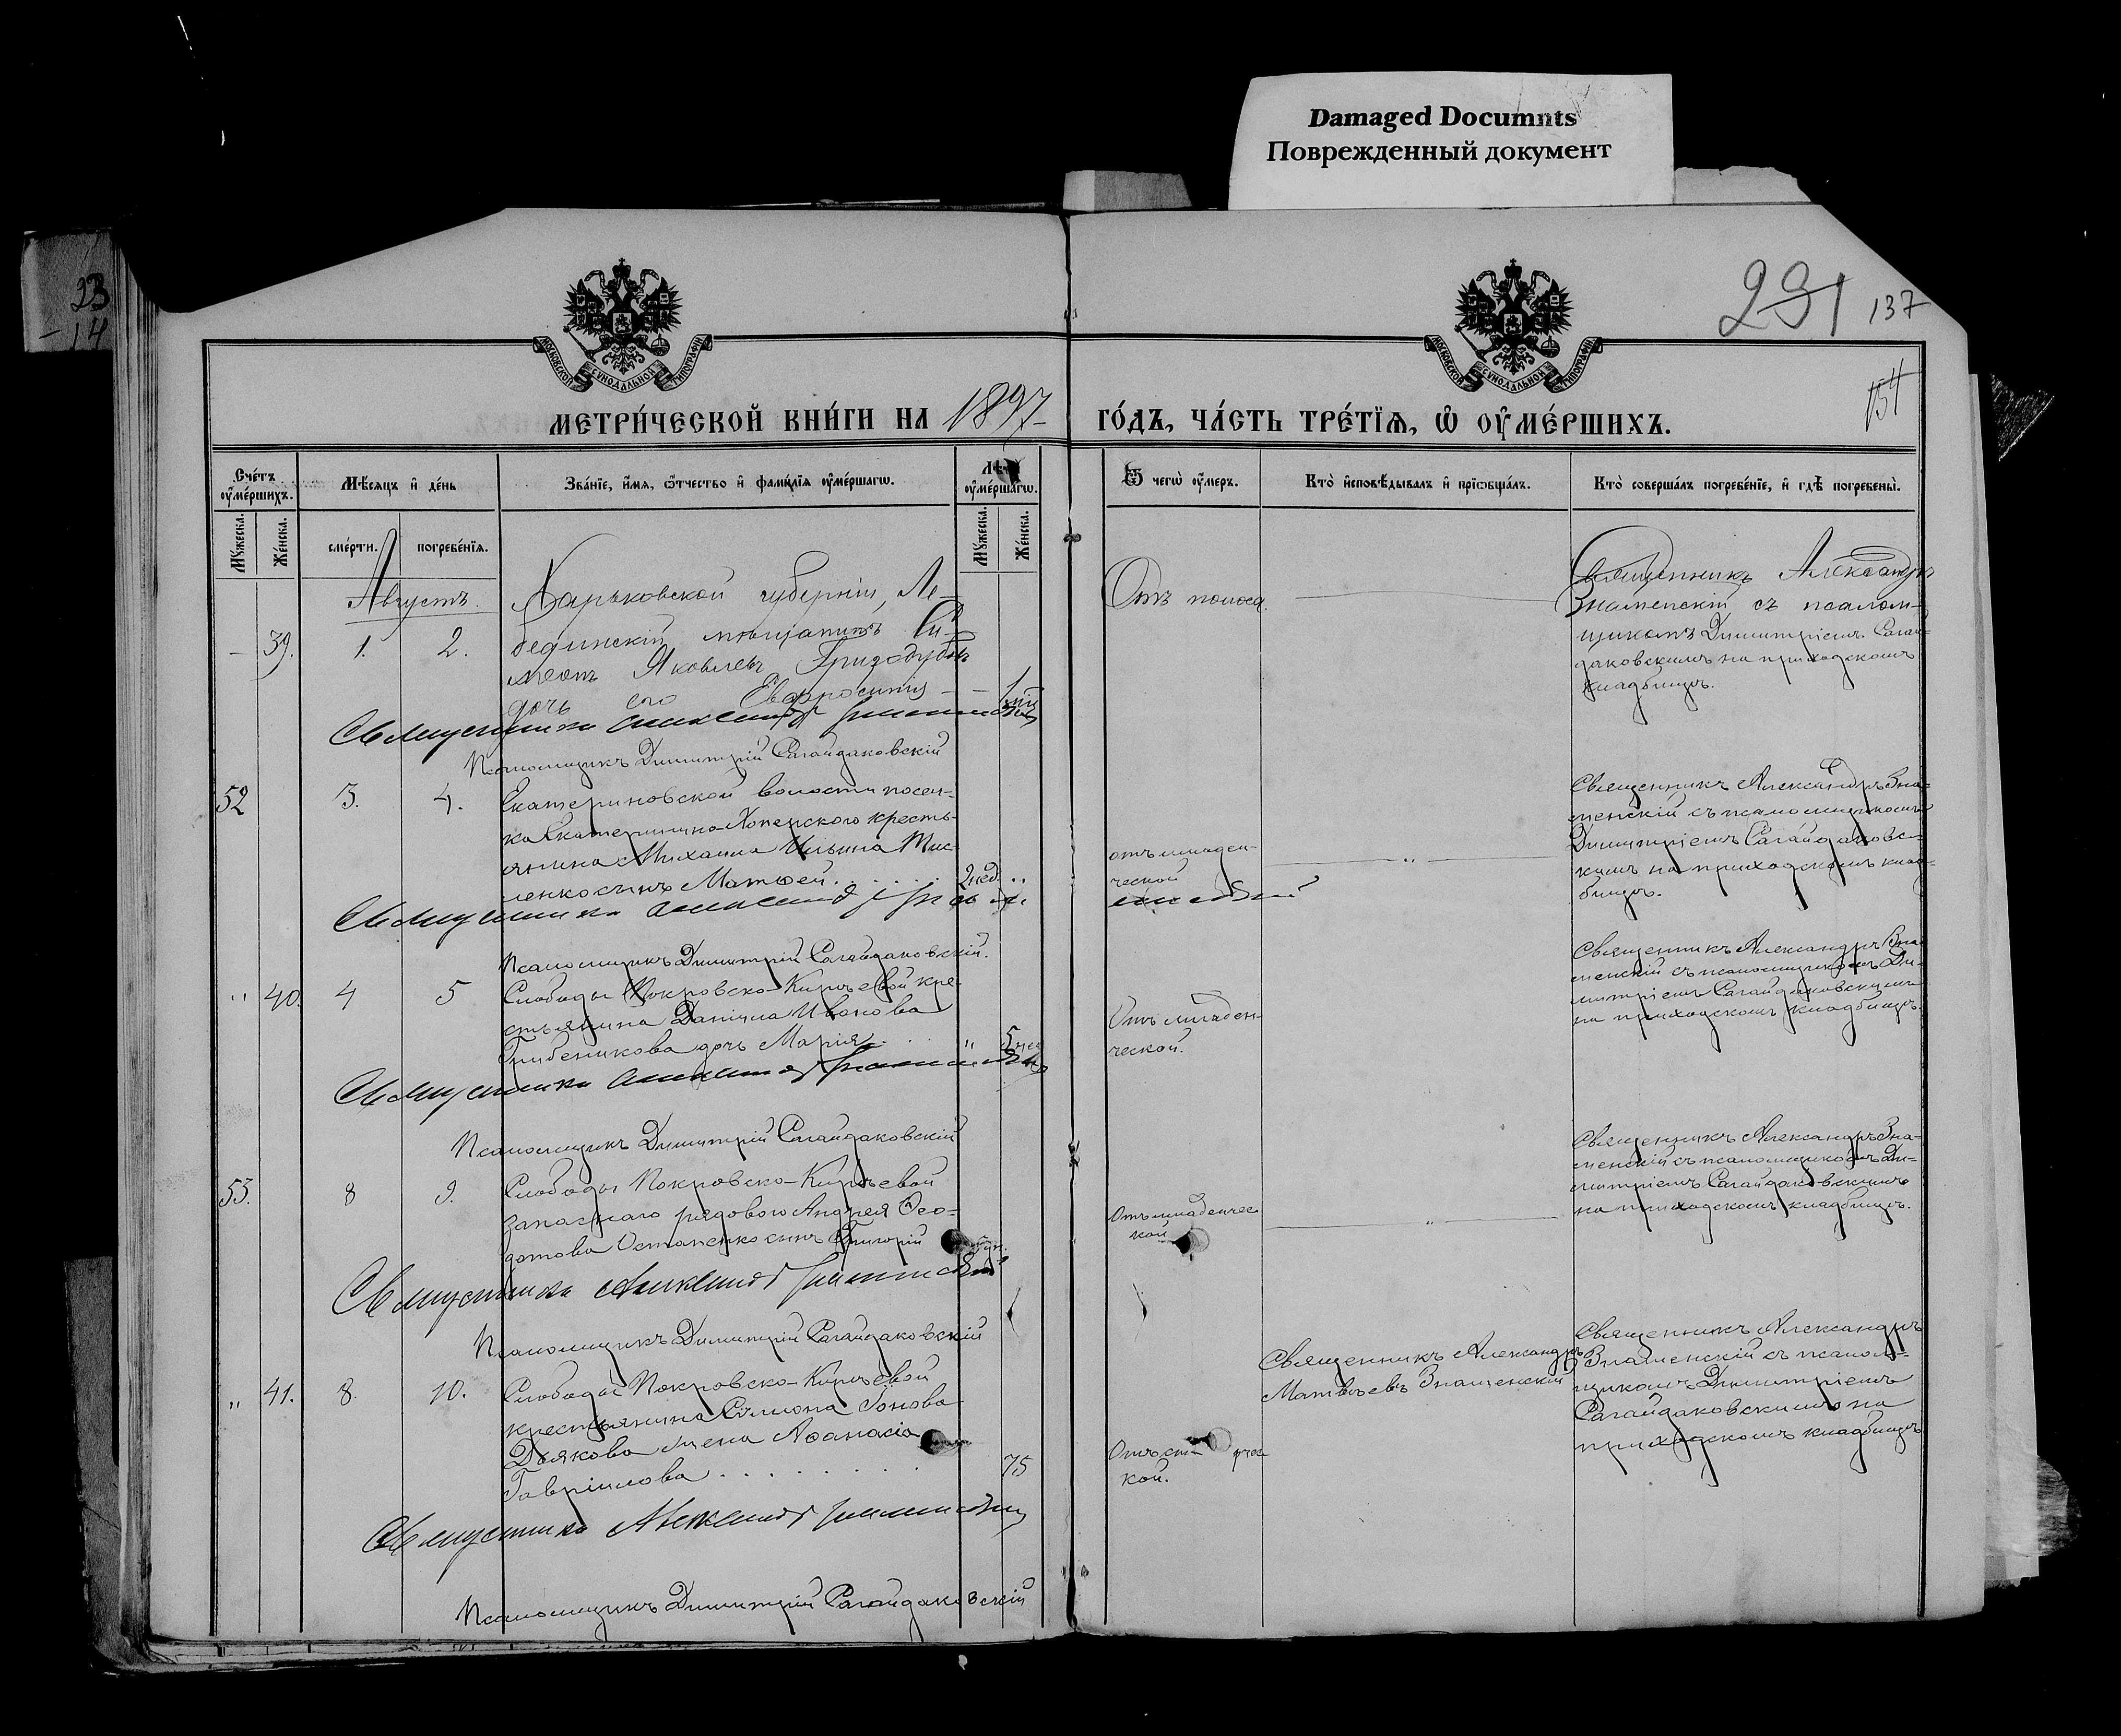 Damaged Documnts
Поврежденный документ
23
- 14
231 137
154
МОСКОВСКОЙ СУНОДАЛЬНОЙ ТИПОГРАФІИ
МОСКОВСКОЙ СУНОДАЛЬНОЙ ТИПОГРАФІИ
МЕТРИ́ЧЕСКОЙ КНИ́ГИ НА 1897 ГО́ДЪ, ЧА́СТЬ ТРЕ́ТЇѦ, Ѡ҆ ОУ҆МЕ́РШИХЪ.
Сче́тъ оу҆ме́ршихъ.
Мѣ́сяцъ и҆ де́нь
Зва́нїе, и҆́мя, ѻ҆́тчество и҆ фами́лїя оу҆ме́ршагѡ.
Лѣта оу҆ме́ршагѡ.
Ѿ чегѡ̀ оу҆́меръ.
Кто̀ и҆сповѣ́дывалъ и҆ прїѡбща́лъ.
Кто̀ соверша́лъ погребе́нїе, и҆ гдѣ̀ погребены̀.
Му́жеска.
Же́нска.
сме́рти.
погребе́нїя.
Му́жеска.
Же́нска.
Августъ.
Харьковской губерніи, Ле-
бединскій мѣщанинъ
— 39. 1. 2.
Яковлевъ
дочь его Евфросинія — —
Отъ поноса.
Священникъ Александръ
Знаменскій съ псалом-
щикомъ Димитріемъ Сагай-
даковскимъ на приходскомъ
кладбищѣ.
Священникъ Александръ Знаменскій
Псаломщикъ Димитрій Сагайдаковскій
52 3. 4.
Екатериновской волости посел-
ка Екатеринино-Хоперского кресть-
янина Михаила Ильина Тис-
ленко сынъ Матѳей . . . . . 2 нед. "
отъ младен-
ческой
Священникъ Александръ Зна-
менскій съ псаломщикомъ
Димитріемъ Сагайдаковс-
кимъ на приходскомъ клад-
бищѣ.
Священникъ Александръ Знаменскій
Псаломщикъ Димитрій Сагайдаковскій.
" 40. 4 5
Слободы Покровско-Кирѣевой кре-
стьянина Даніила Иванова
дочь Марія . . . " 5 нед
Отъ младен-
ческой.
Священникъ Александръ Зна-
менскій съ псаломщикомъ Ди-
митріемъ Сагайдаковскимъ
на приходскомъ кладбищѣ.
Священникъ Александръ Знаменскій
Псаломщикъ Димитрій Сагайдаковскій
53. 8 9.
Слободы Покровско-Кирѣевой
запаснаго рядового Андрея Ѳео-
дотова Остапенко сынъ Григорій
Отъ младенчес
кой
Священникъ Александръ Зна-
менскій съ псаломщикомъ Ди-
митріемъ Сагайдаковскимъ
на приходскомъ кладбищѣ.
Священникъ Александръ Знаменскій
Псаломщикъ Димитрій Сагайдаковскій
" 41. 8. 10.
Слободы Покровско-Кирѣевой
крестьянина Симона Іонова
Дьякова жена Аѳанасія
Гавріилова . . . . . . . . . 75
кой.
Священникъ Александръ
Матвѣевъ Знаменскій
Священникъ Александръ
Знаменскій съ псалом-
щикомъ Димитріемъ
Сагайдаковскимъ на
приходскомъ кладбищѣ
Священникъ Александръ Знаменскій
Псаломщикъ Димитрій Сагайдаковскій